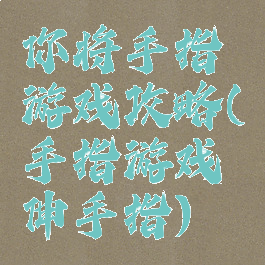 你将手指
游戏攻略(
手指游戏
呻手指)